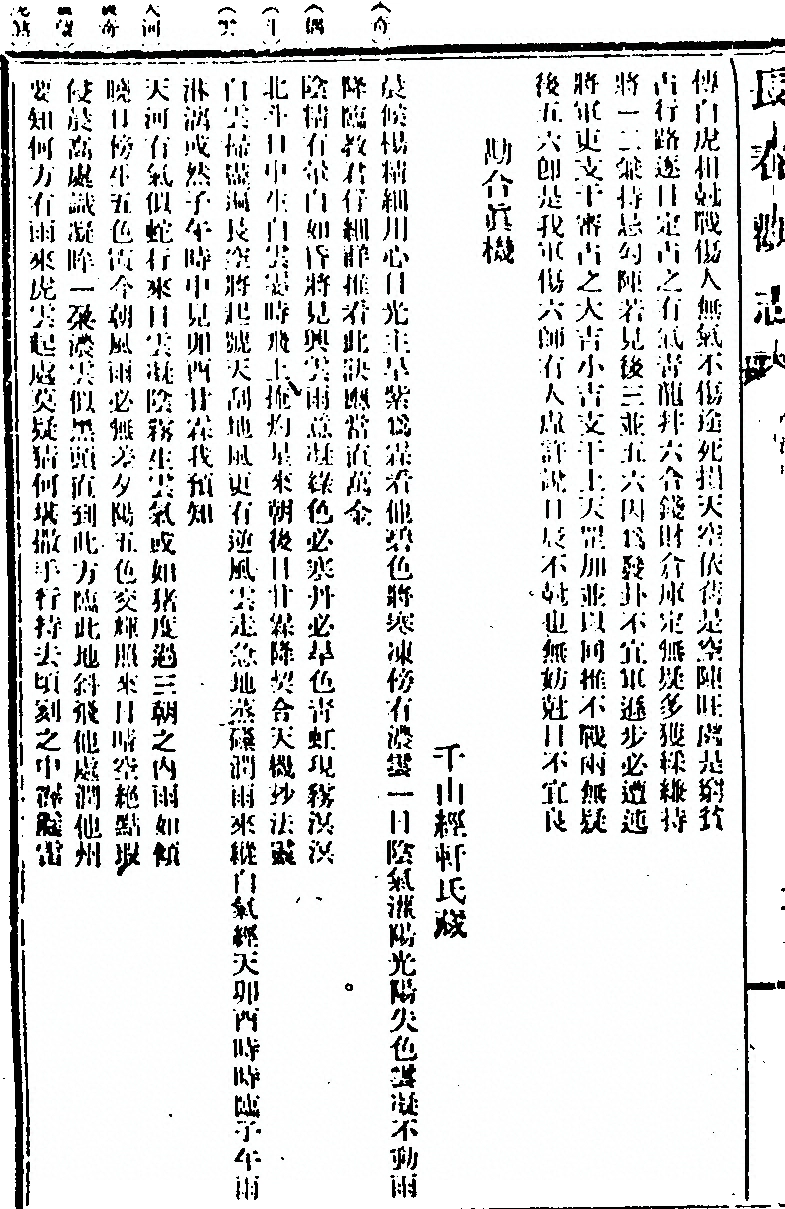 長春觀志
傳白虎相尅戰傷人無氣不傷途死損天空依舊是空陳旺處是窮貧
占行路逐日定占之有氣青龍并六合錢財倉庫定無疑多獲綵維持
將一二無持忌勾陳若見後三並五六因爲發卦不宜軍進步必遭迍
將軍更支干審占之大吉小吉支干上天罡加並以同推不戰雨無疑
後五六卽是我軍傷六師有人虛詐說日辰不尅也無妨尅日不宜良
勘合眞機
千山經軒氏藏
晨候楊精細用心日光主旱紫爲霖看他碧色將寒凍傍有濃雲一日陰氣滋陽光陽失色雲凝不動雨
降臨敎君仔細詳推看此訣應當直萬金
陰精有暈白如昏將見興雲雨意凝綠色必寒丹必旱色靑虹現霧溟溟
北斗口中生白雲霎時飛上掩灼星來朝後日甘霖降契合天機妙法靈
白雲掃盡滿長空將起號天刮地風更有逆風雲走急地蒸礎潤雨來縱白氣經天卯酉時時臨子午雨
淋漓或然子午時中見卯酉甘霖我預知
天河有氣似蛇行來日雲凝陰霧生雲氣或如猪度過三朝之內雨如傾
曉日傍生五色霓今朝風雨必無差夕陽五色交輝照來日晴空絕點瑕
侵晨高處識凝眸一朶濃雲似黑頭直到此方臨此地斜飛他處潤他州
要知何方有雨來虎雲起處莫疑猜何堪撒手行持去頃刻之中源聽雷